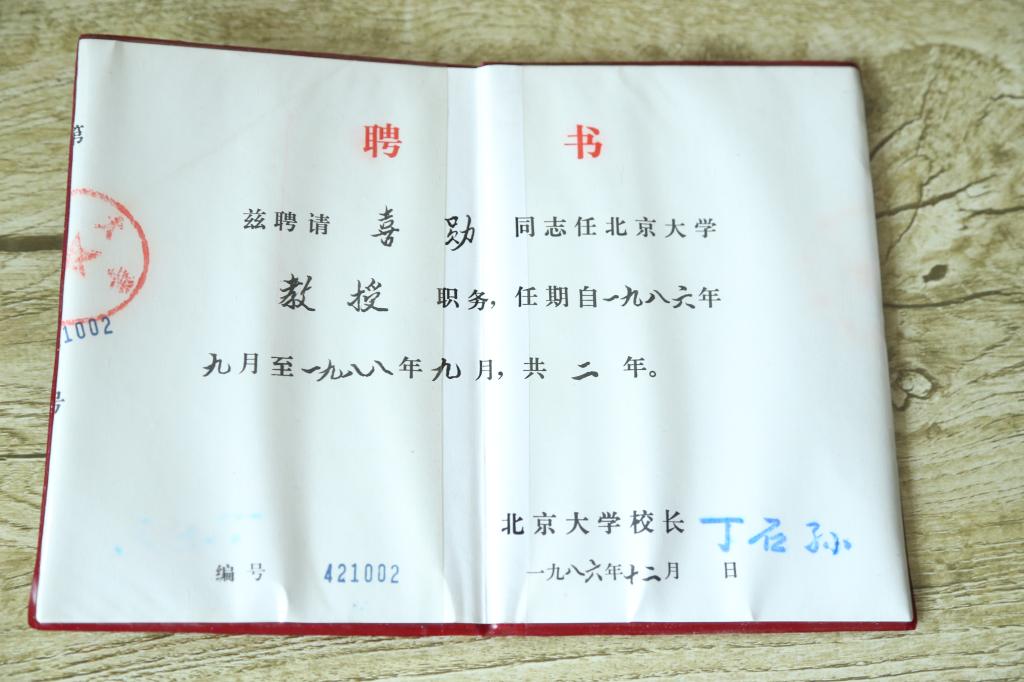 聘 书
兹聘请 喜 勋 同志任北京大学
教 授 职务，任期自一九八六年
九月至一九八八年九月，共 二 年。
北京大学校长 丁石孙
编号 421002 一九八六年十二月 日
第
大 学
1002
号